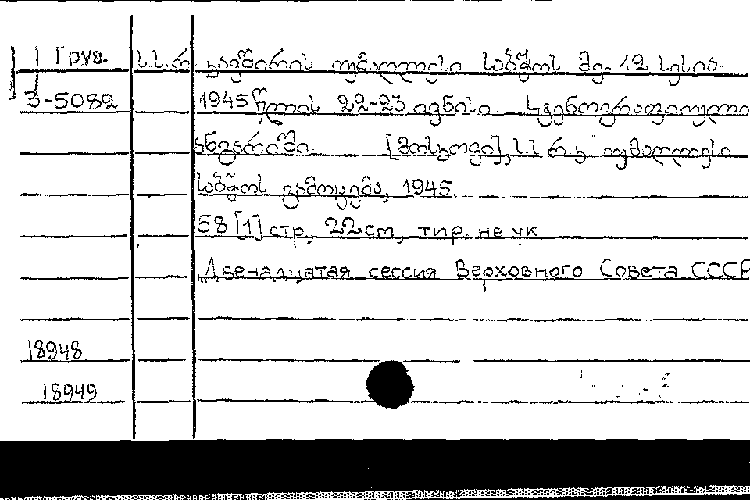 Груз. ს.ს.რ. კავშირის უმაღლესი საბჭოს მე-12 სესია
3-5082 1945 წლის 22-23 ივნისი სტენოგრაფიული
ანგარიში. [მოსკოვი], ს.ს.რ.კ. უმაღლესი
საბჭოს გამოცემა, 1945.
58 [1] стр, 22 cm, тир. не ук
Двенадцатая сессия Верховного Совета СССР
18948
18949